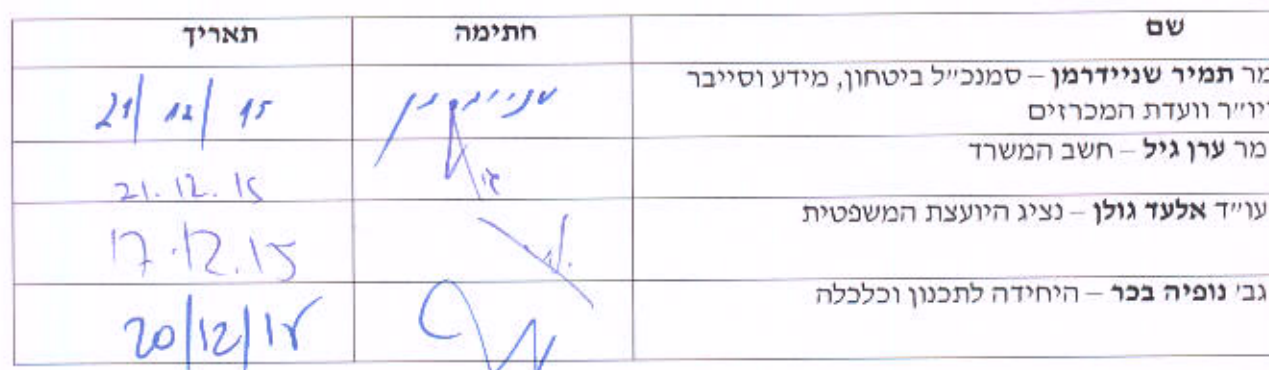 שם חתימה תאריך
מר תמיר שניידרמן – סמנכ״ל ביטחון, מידע וסייבר
ויו״ר וועדת המכרזים
21/12/15
מר ערן גיל – חשב המשרד
21.12.15
עו״ד אלעד גולן – נציג היועצת המשפטית
17.12.15
גבי נופיה בכר – היחידה לתכנון וכלכלה
20/12/15